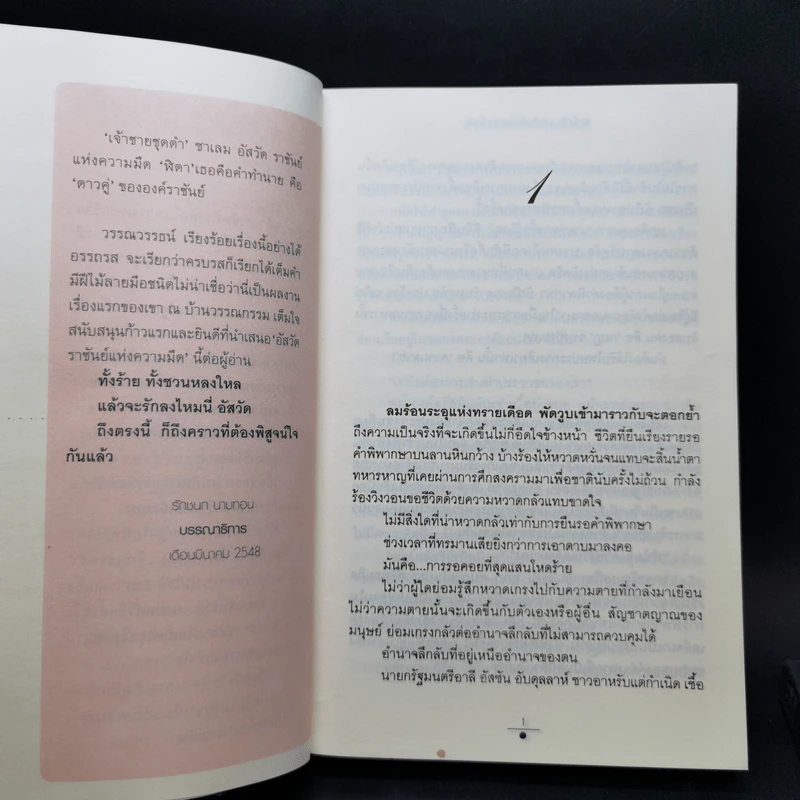 'เจ้าชายชุดดำ' ซาเลม อัสวัด ราชันย์
แห่งความมืด 'ฬิตา'เธอคือคำทำนาย คือ
'ดาวคู่' ขององค์ราชันย์
วรรณวรรธน์ เรียงร้อยเรื่องนี้อย่างได้
อรรถรส จะเรียกว่าครบรสก็เรียกได้เต็มคำ
มีฝีไม้ลายมือชนิดไม่น่าเชื่อว่านี่เป็นผลงาน
เรื่องแรกของเขา ณ บ้านวรรณกรรม เต็มใจ
สนับสนุนก้าวแรกและยินดีที่นำเสนอ'อัสวัด
ราชันย์แห่งความมืด' นี้ต่อผู้อ่าน
ทั้งร้าย ทั้งชวนหลงใหล
แล้วจะรักลงไหมนี่ อัสวัด
ถึงตรงนี้ ก็ถึงคราวที่ต้องพิสูจน์ใจ
กันแล้ว
รักชนก นามทอน
บรรณาธิการ
เดือนมีนาคม 2548
1
ลมร้อนระอุแห่งทรายเดือด พัดวูบเข้ามาราวกับจะตอกย้ำ
ถึงความเป็นจริงที่จะเกิดขึ้นไม่กี่อึดใจข้างหน้า ชีวิตที่ยืนเรียงรายรอ
คำพิพากษาบนลานหินกว้าง บ้างร้องไห้หวาดหวั่นจนแทบจะสิ้นน้ำตา
ทหารหาญที่เคยผ่านการศึกสงครามมาเพื่อชาตินับครั้งไม่ถ้วน กำลัง
ร้องวิงวอนขอชีวิตด้วยความหวาดกลัวแทบขาดใจ
ไม่มีสิ่งใดที่น่าหวาดกลัวเท่ากับการยืนรอคำพิพากษา
ช่วงเวลาที่ทรมานเสียยิ่งกว่าการเอาดาบมาลงคอ
มันคือ...การรอคอยที่สุดแสนโหดร้าย
ไม่ว่าผู้ใดย่อมรู้สึกหวาดเกรงไปกับความตายที่กำลังมาเยือน
ไม่ว่าความตายนั้นจะเกิดขึ้นกับตัวเองหรือผู้อื่น สัญชาตญาณของ
มนุษย์ ย่อมเกรงกลัวต่ออำนาจลึกลับที่ไม่สามารถควบคุมได้
อำนาจลึกลับที่อยู่เหนืออำนาจของตน
นายกรัฐมนตรีอาลี อัสซัน อับดุลลาห์ ชาวอาหรับแต่กำเนิด เชื้อ
1